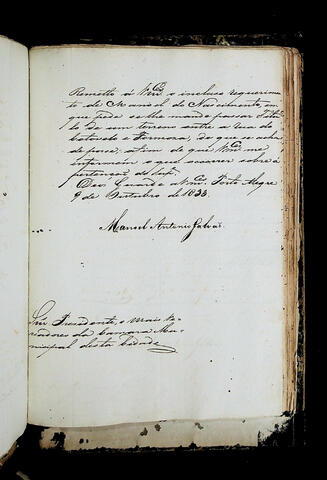 Remetto á Vm.ces o incluso requerimen-
to de Manoel do Nascimento, em
que pede se lhe mande passar Titu-
lo de um terreno entre a rua de
e Formoza, de que se acha
de posse; afim de que Vm.ces me
informem o que ocorrer sobre á
pertenção do Sup.e
Deos Guarde a Vm.ces Porto Alegre
9 de Setembro de 1833.
Manoel Antonio Galvão
Snr.s Presidente, e mais Ve-
readores da Camara Mu-
nicipal desta Cidade